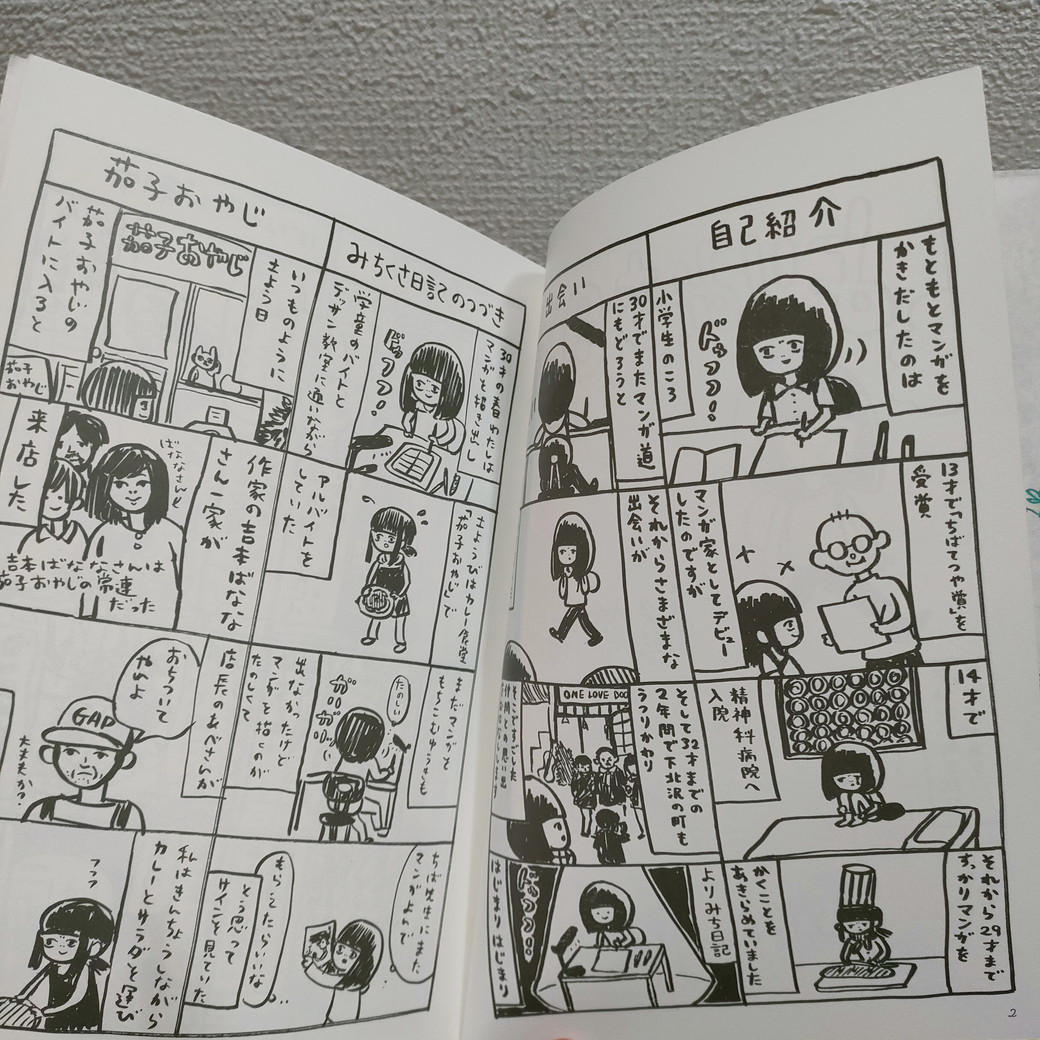 自己紹介
もともとマンガを
かきだしたのは
小学生のころ
ドッフフ!
13才で「ちばてつや賞」を
受賞
マンガ家としてデビュー
したのですが
14才で
精神科病院へ
入院
それから29才まで
すっかりマンガを
かくことを
あきらめていました
出会い
30才でまたマンガ道
にもどろうと
それからさまざまな
出会いが
そして32才までの
2年間で下北沢の町も
うつりかわり
ONE LOVE
そこですごした
よりみち日記
はじまりはじまり
みちくさ日記のつづき
30才の春わたしは
マンガを描き出し
ドッフフ!
学童のバイトと
デッサン教室に通いながら
土ようびはカレー食堂
「茄子おやじ」で
アルバイトを
していた
まだマンガと
たのしい
ガリガリ
出なかったけど
マンガを描くのが
たのしくて
ちば先生にまた
マンガがよんで
もらえたらいいな
とう思って
サインを見ていた
茄子おやじ
いつものように
土よう日
茄子おやじ
茄子おやじの
バイトに入ると
茄子
おやじ
作家の吉本ばなな
さん一家が
ばななさんと
来店した
吉本ばななさんは
茄子おやじの常連
だった
店長のあべさんが
おちついて
やれよ
GAP
大丈夫か?
私はきんちょうしながら
カレーとサラダを運び
フフフ
2